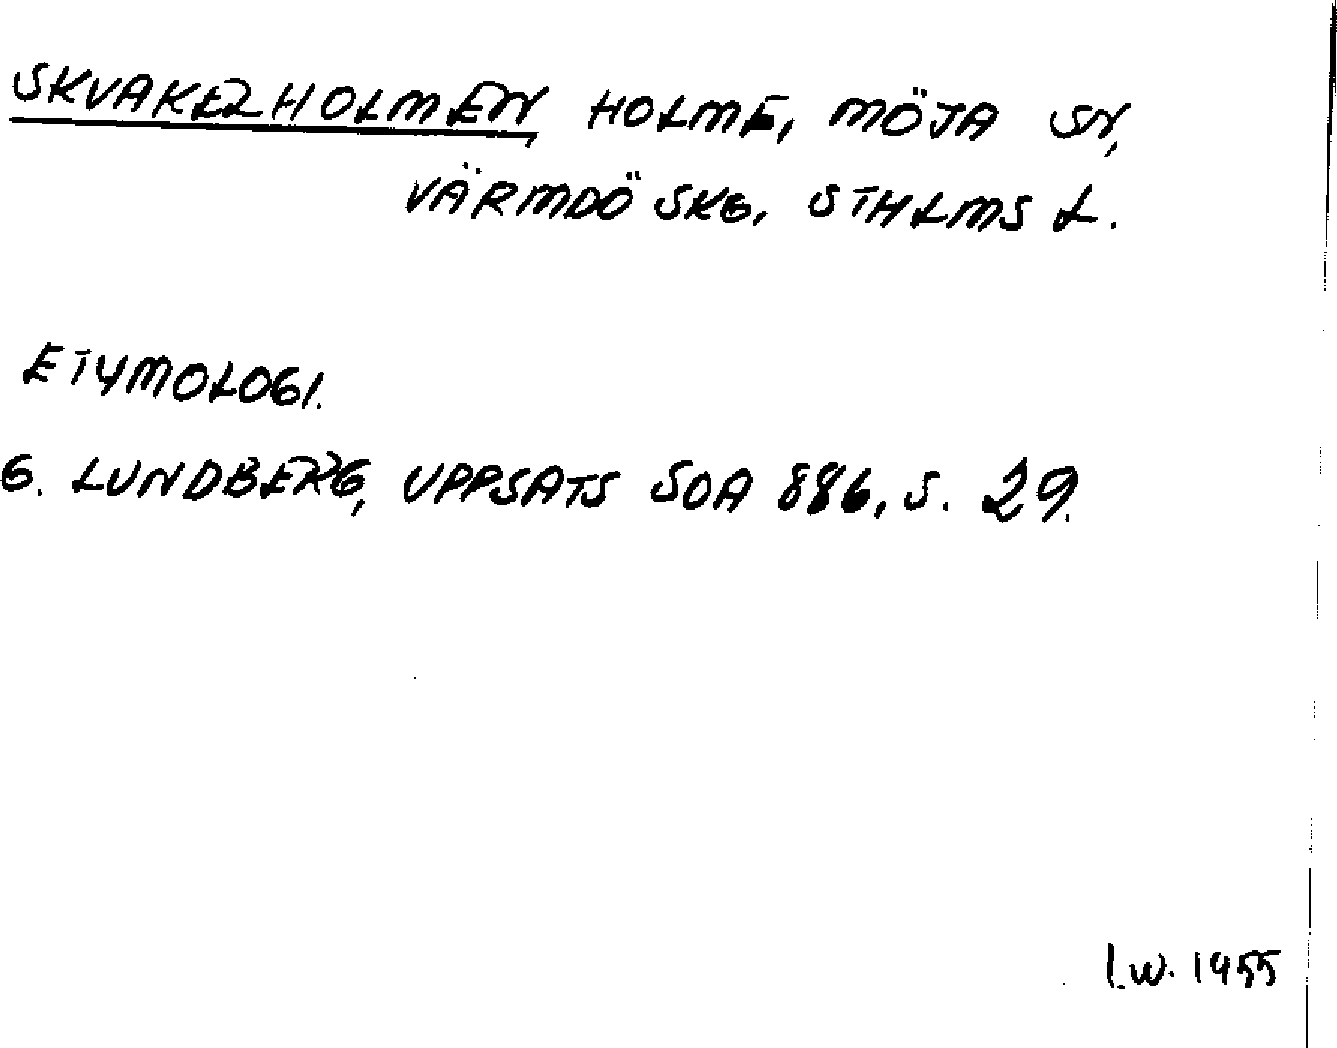 SKVAKERHOLMEN, HOLME, MÖJA SN,
VÄRMDÖ SKG, STHLMS L.
ETYMOLOGI.
G. LUNDBERG, UPPSATS SOA 886, S. 29.
I.W. 1955